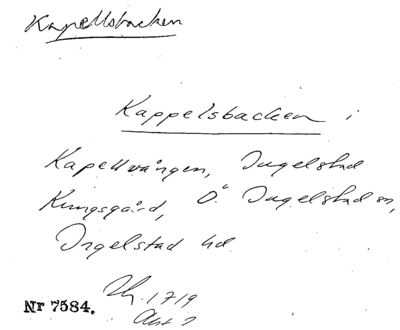 Kapellsbacken
Kappelsbacken i
Kapellvången, Ingelstad
Kungsgård, Ö. Ingelstad sn,
Ingelstad hd.
Nr 7584.
1719
Akt 7